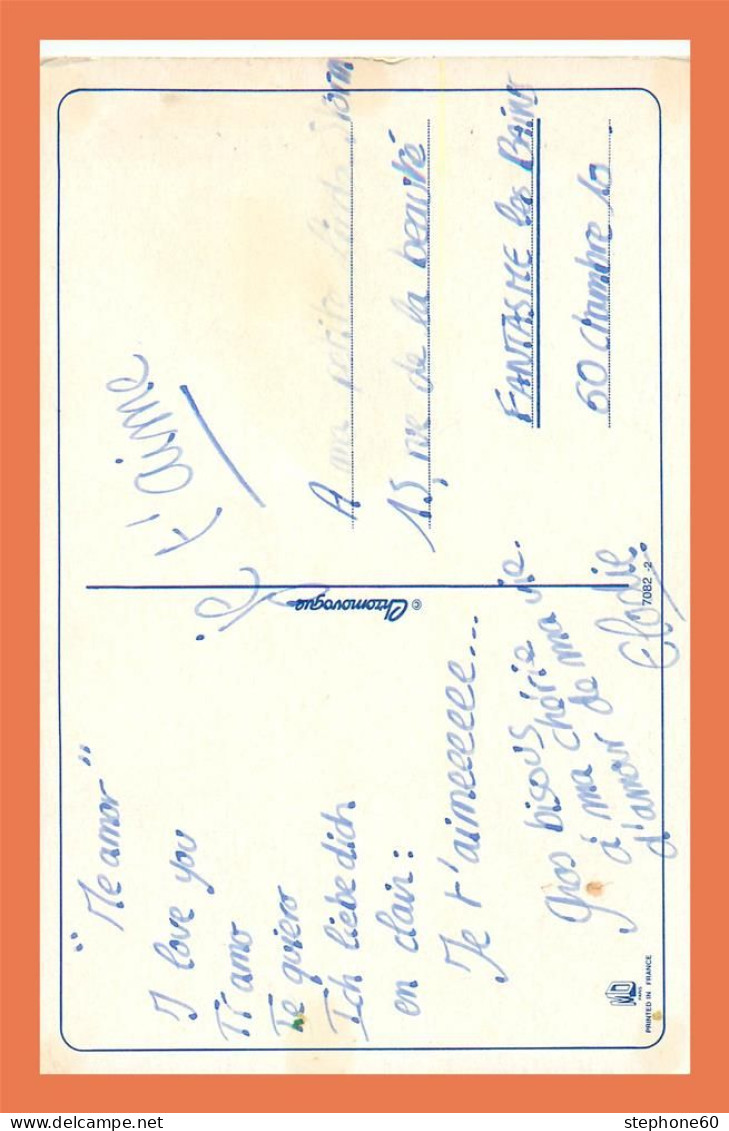 "Me amor"
I love you
Ti amo
Te quiero
Ich liebe dich
en clair :
Je t'aimeeeeee...
Gros bisous
à ma chérie
d'amour de ma vie.
Elodie
Je t'aime
A ma petite
15, rue de la beauté
FANTASME les BAINS
60 chambre 10
© Chromovogue
7082 -2
MD
PARIS
PRINTED IN FRANCE
stephone60